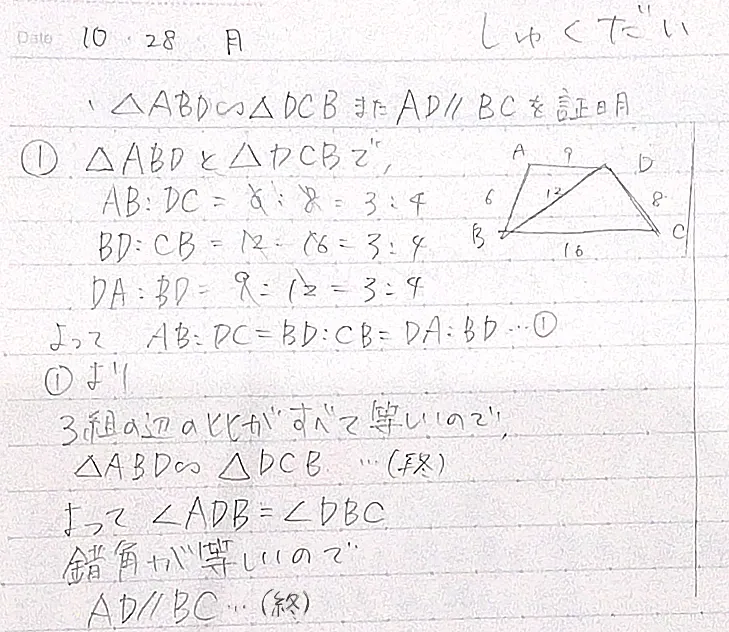 しゅくだい
Date 10・28・月
、△ABD∽△DCB また AD//BCを証明
① △ABDと△DCBで、
AB:DC = 6:8 = 3:4
BD:CB = 12:16 = 3:4
DA:BD = 9:12 = 3:4
よって AB:DC=BD:CB=DA:BD…①
①より
3組の辺の比がすべて等しいので、
△ABD∽△DCB …(終)
よって ∠ADB=∠DBC
錯角が等しいので
AD//BC…(終)
A 9 D
6 12 8
B C
16